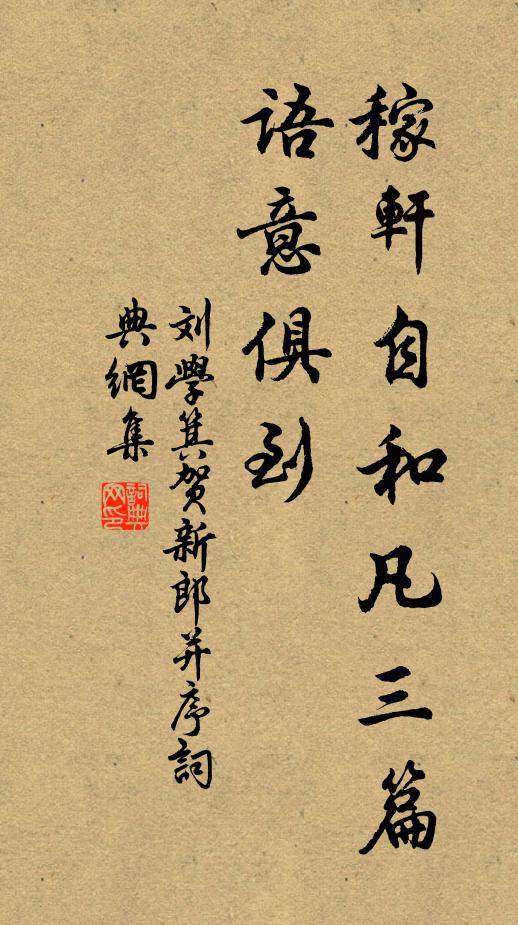 稼軒自和凡三篇
语意俱到
刘學箕贺新郎并序詞
典網集
詞典
网印